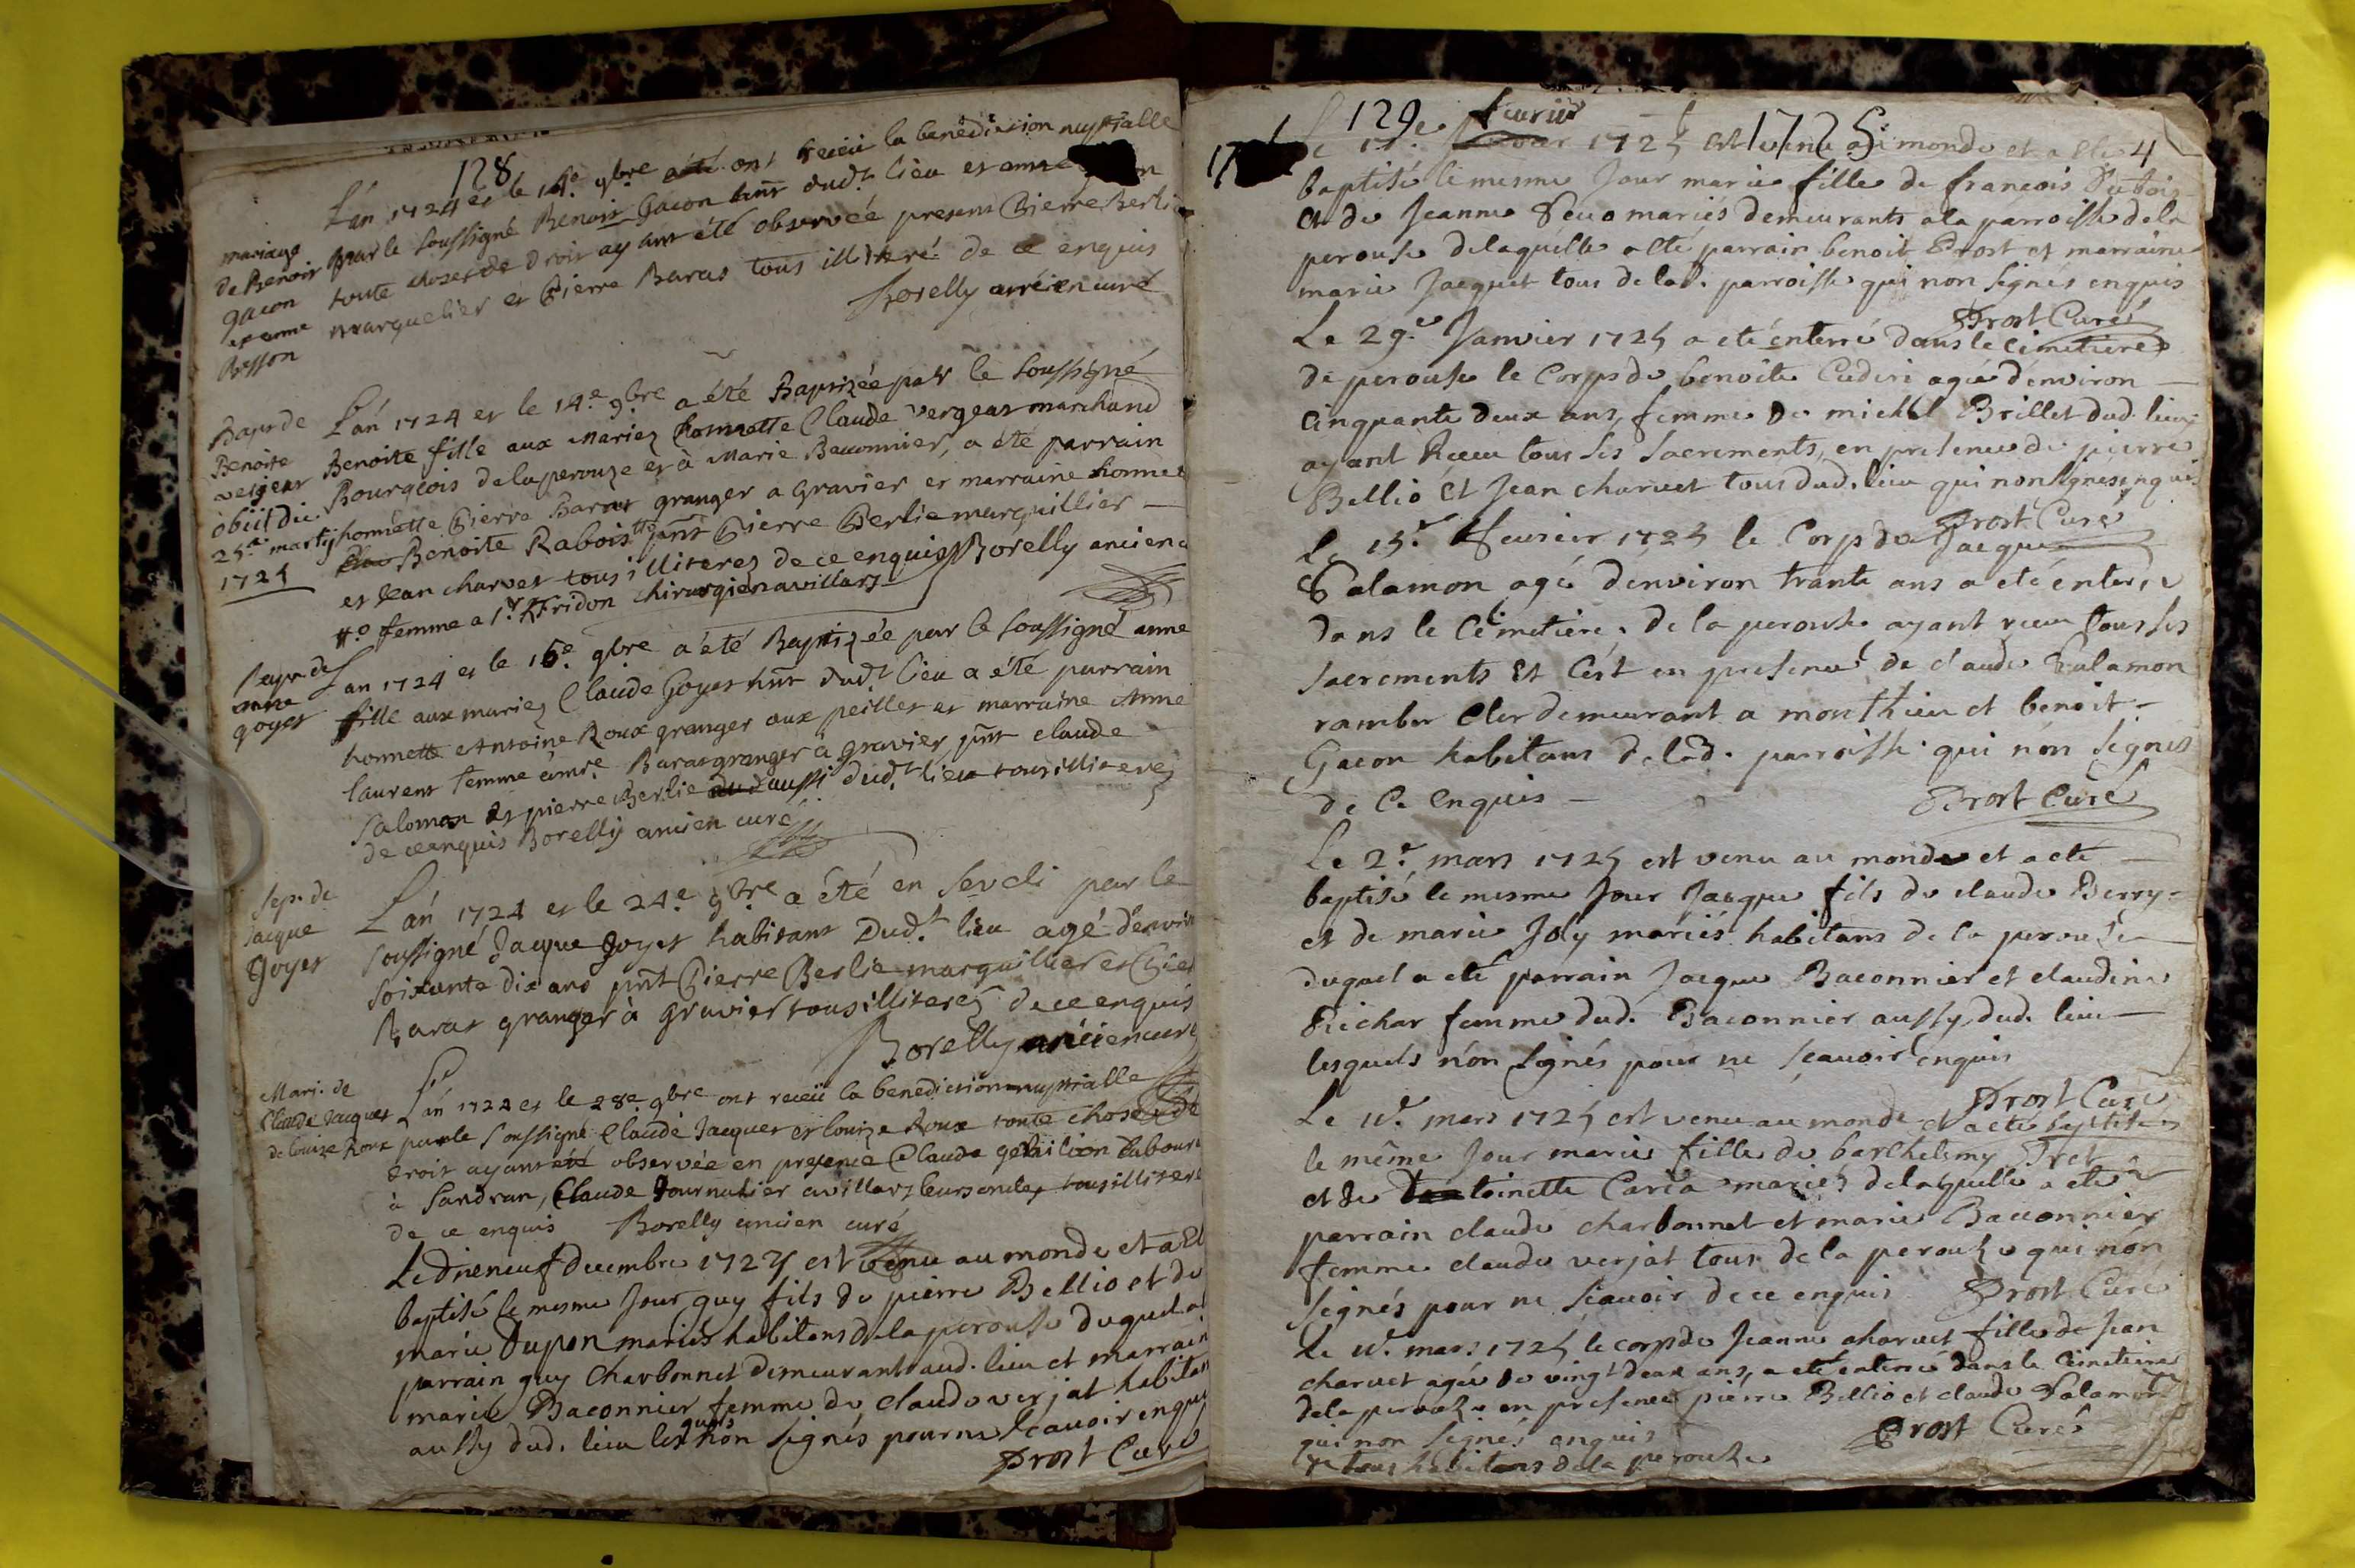 128
mariage
de Benoit
gacon
et anne
Besson
L'an 1724 et le 14e. 9bre ont receü la benediction nuptialle
par le soussigné Benoit Gacon hnt dudt. lieu et anne
toute choses de droit ayant été observée present Pierre Berlie
marguelier et Pierre Baras tous illiteré de ce enquis
Borelly ancien curé
Bapt de
Benoite
vergeat
obiit die
25a. martij
1725
L'an 1724 et le 14.e 9bre a été Baptizée par le soussigné
Benoite fille aux mariez honnette Claude vergeat marchand
Bourgeois delaperouze et à Marie Baconnier, a été parrain
honnette Pierre Baras granger a Gravier et marraine honnet
Benoite Rabois tte. pnt Pierre Berlie marguillier —
et Jean charvet tous illiterez de ce enquis Borelly ancien c
tto femme a Sr. Fridon chirurgien a villars
Bapt de
anne
goyet
L'an 1724 et le 16e. 9bre a été Baptizée par le soussigné anne
fille aux mariez Claude Goyet hnt dudt lieu a été parrain
honnette Antoine Roux granger aux peilles et marraine Anne
laurent femme à mre. Baras granger à gravier, pnt claude
salomon et pierre Berlie aussi dudt. lieu tous illiterez
de ce enquis Borelly ancien curé
Sep. de
Jacque
Goyet
L'an 1724 et le 24.e 9bre a été en seveli par le
soussigné Jacque Goyet habitant Dudt. lieu agé d'enviro
soixante dix ans pnt Pierre Berlie marguillier et Pier
Baras granger à Gravier tous illiterez de ce enquis
Borelly ancien curé
Mari. de
Claude Jacquet
de louize Roux
L'an 1724 et le 28e 9bre ont receü la benediction nuptialle
par le soussigné Claude Jacquet et louize Roux toute chose de
droit ayant été observée en presence Claude laboure
à Sandran, Claude Journalier a villars leurs oncles tous illitere
de ce enquis Borelly ancien curé
Le dixneuf decembre 1724 est venu au monde et a été
baptisé le mesme Jour guy fils de pierre Bellio et de
marie Dupon mariés habitans de la perouse duquel a
parrain guy Charbonnet demeurant aud. lieu et marrain
marie Baconnier femme de claude verjat habitan
aussy dud. lieu lesquels n'on signés pour ne scavoir enqui
Prost Curé
129
1725
4
Le feurier 1725 est venu au monde et a été
baptisé le mesme Jour marie fille de francois Dubois
et de Jeanne mariés demeurants a la parroisse de la
perouse delaquelle a été parrain benoit Prost et marraine
marie Jacquet tous de lad. parroisse qui non signés enquis
Prost Curé
Le 29.e Janvier 1725 a eté enterré dans le cimetiere
de perouse le Corps de benoite Cudiri agée d'environ —
cinquante deux ans, femme de michel Brillet dud. lieu
ayant Receu tous ses sacrements, en presence de pierre
Bellio et Jean charvet tous dud. lieu qui non signés enquis
Prost Curé
Le 15.e feurier 1725 le Corps de Jacque
Salamon agé d'environ trante ans a eté enterré
dans le Cemetiere de la perouse ayant receu tous ses
sacrements et c'est en presence de claude Salamon
demeurant a monthieu et benoit —
Gacon habitans de lad. parroisse qui n'on signés
de Ce enquis — Prost Curé
Le 2.e mars 1725 est venu au monde et a eté —
baptisé le mesme Jour Jacque fils de claude Berry —
et de marie Joly mariés habitans de la perouse —
duquel a eté parrain Jacque Baconnier et claudine
Richar femme dud. Baconnier aussy dud. lieu —
lesquels n'on signés pour ne scauoir enquis
Prost Curé
Le 11e. mars 1725 est venu au monde et a eté baptisée
le même Jour marie fille de barthelemy Tret
et de toinette Carra mariés delaquelle a eté
parrain claude charbonnet et marie Baconnier
femme claude verjat tous de la perouse qui n'on
signés pour ne scauoir de ce enquis Prost Curé
Le 11e. mars 1725 le corps de Jeanne charvet fille de Jean
charvet agée de vingt deux ans, a eté enterré dans le Cimetiere
dela perouse en presence pierre Bellio et claude Salamon
qui non signés enquis Prost Curé
et tous habitans de la perouse